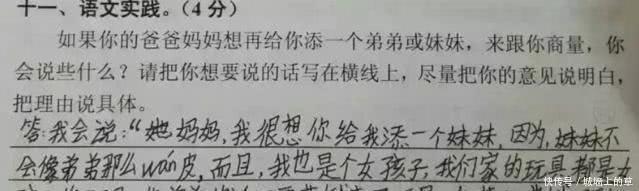 十一、语文实践。(4分)
如果你的爸爸妈妈想再给你添一个弟弟或妹妹，来跟你商量，你
会说些什么？请把你想要说的话写在横线上，尽量把你的意见说明白，
把理由说具体。
答：我会说：“妈妈，我很想你给我添一个妹妹，因为，妹妹不
会像弟弟那么wán皮，而且，我也是个女孩子，我们家的玩具都是
快传号/城墙上的草